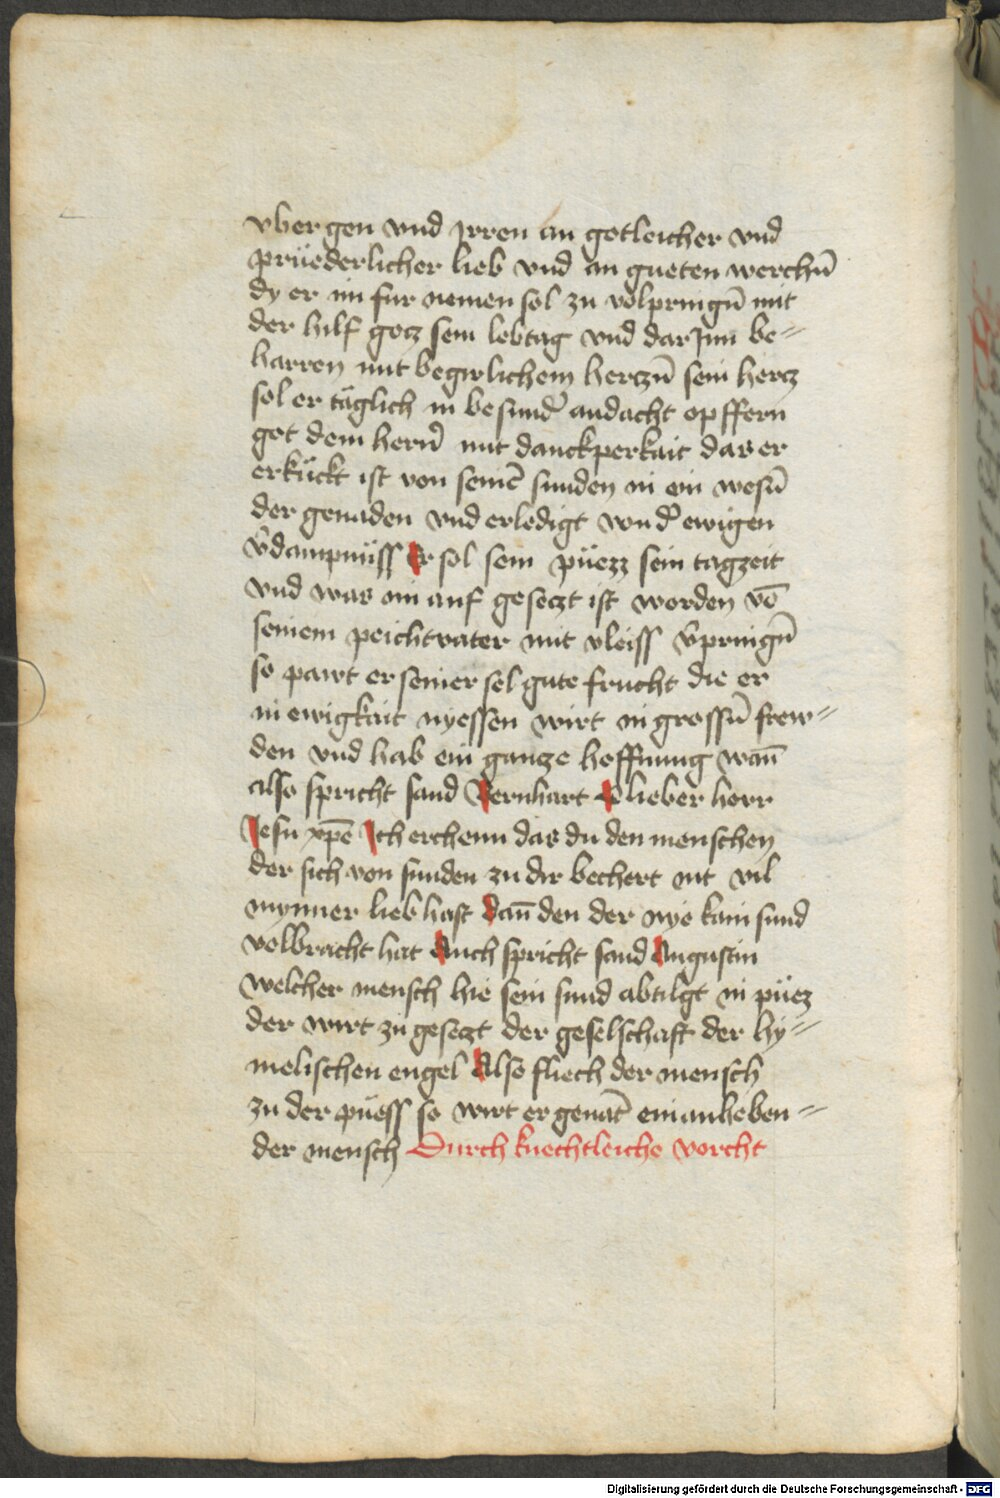 vber gen vnd jrren an gotleicher vnd
prüederlicher lieb vnd an gueten werchn̄
dy er im fur nemen sol zu volpringn̄ mit
der hilf gocz sein lebtag vnd dar Jnn be⸗
harren mit begirlichem herczn̄ sein hercz
sol er täglich in besund̉ andacht opffern
got dem hern̄ mit danckperkait das er
erkückt ist von seinē sunden in ein wesn̄
der genaden vnd erledigt von d̉ ewigen
v̉dampnüss Er sol sein püezz sein tagzeit
vnd was im auf geseczt ist worden vō
seinem peichtvater mit vleiss v̉pringn̄
so pawt er seiner sel gute frucht die er
in ewigkait nyessen wirt in grossn̄ frew⸗
den vnd hab ein gancze hoffnung wan̄
also spricht sand Bernhart O lieber herr
Jesu xp̄e Ich erchenn das du den menschen
der sich von sunden zu dir bechert nit vil
mynner lieb hast dan̄ den der nye kain sund
volbracht hat Auch spricht sand Augustin
welcher mensch hie sein sund abtilgt in püez
der wirt zu geseczt der geselschaft der hy⸗
melischen engel Also fliech der mensch
zu der püess so wirt er genāt ein anheben⸗
der mensch Durch knechtleiche vorcht
Digitalisierung gefördert durch die Deutsche Forschungsgemeinschaft - DFG